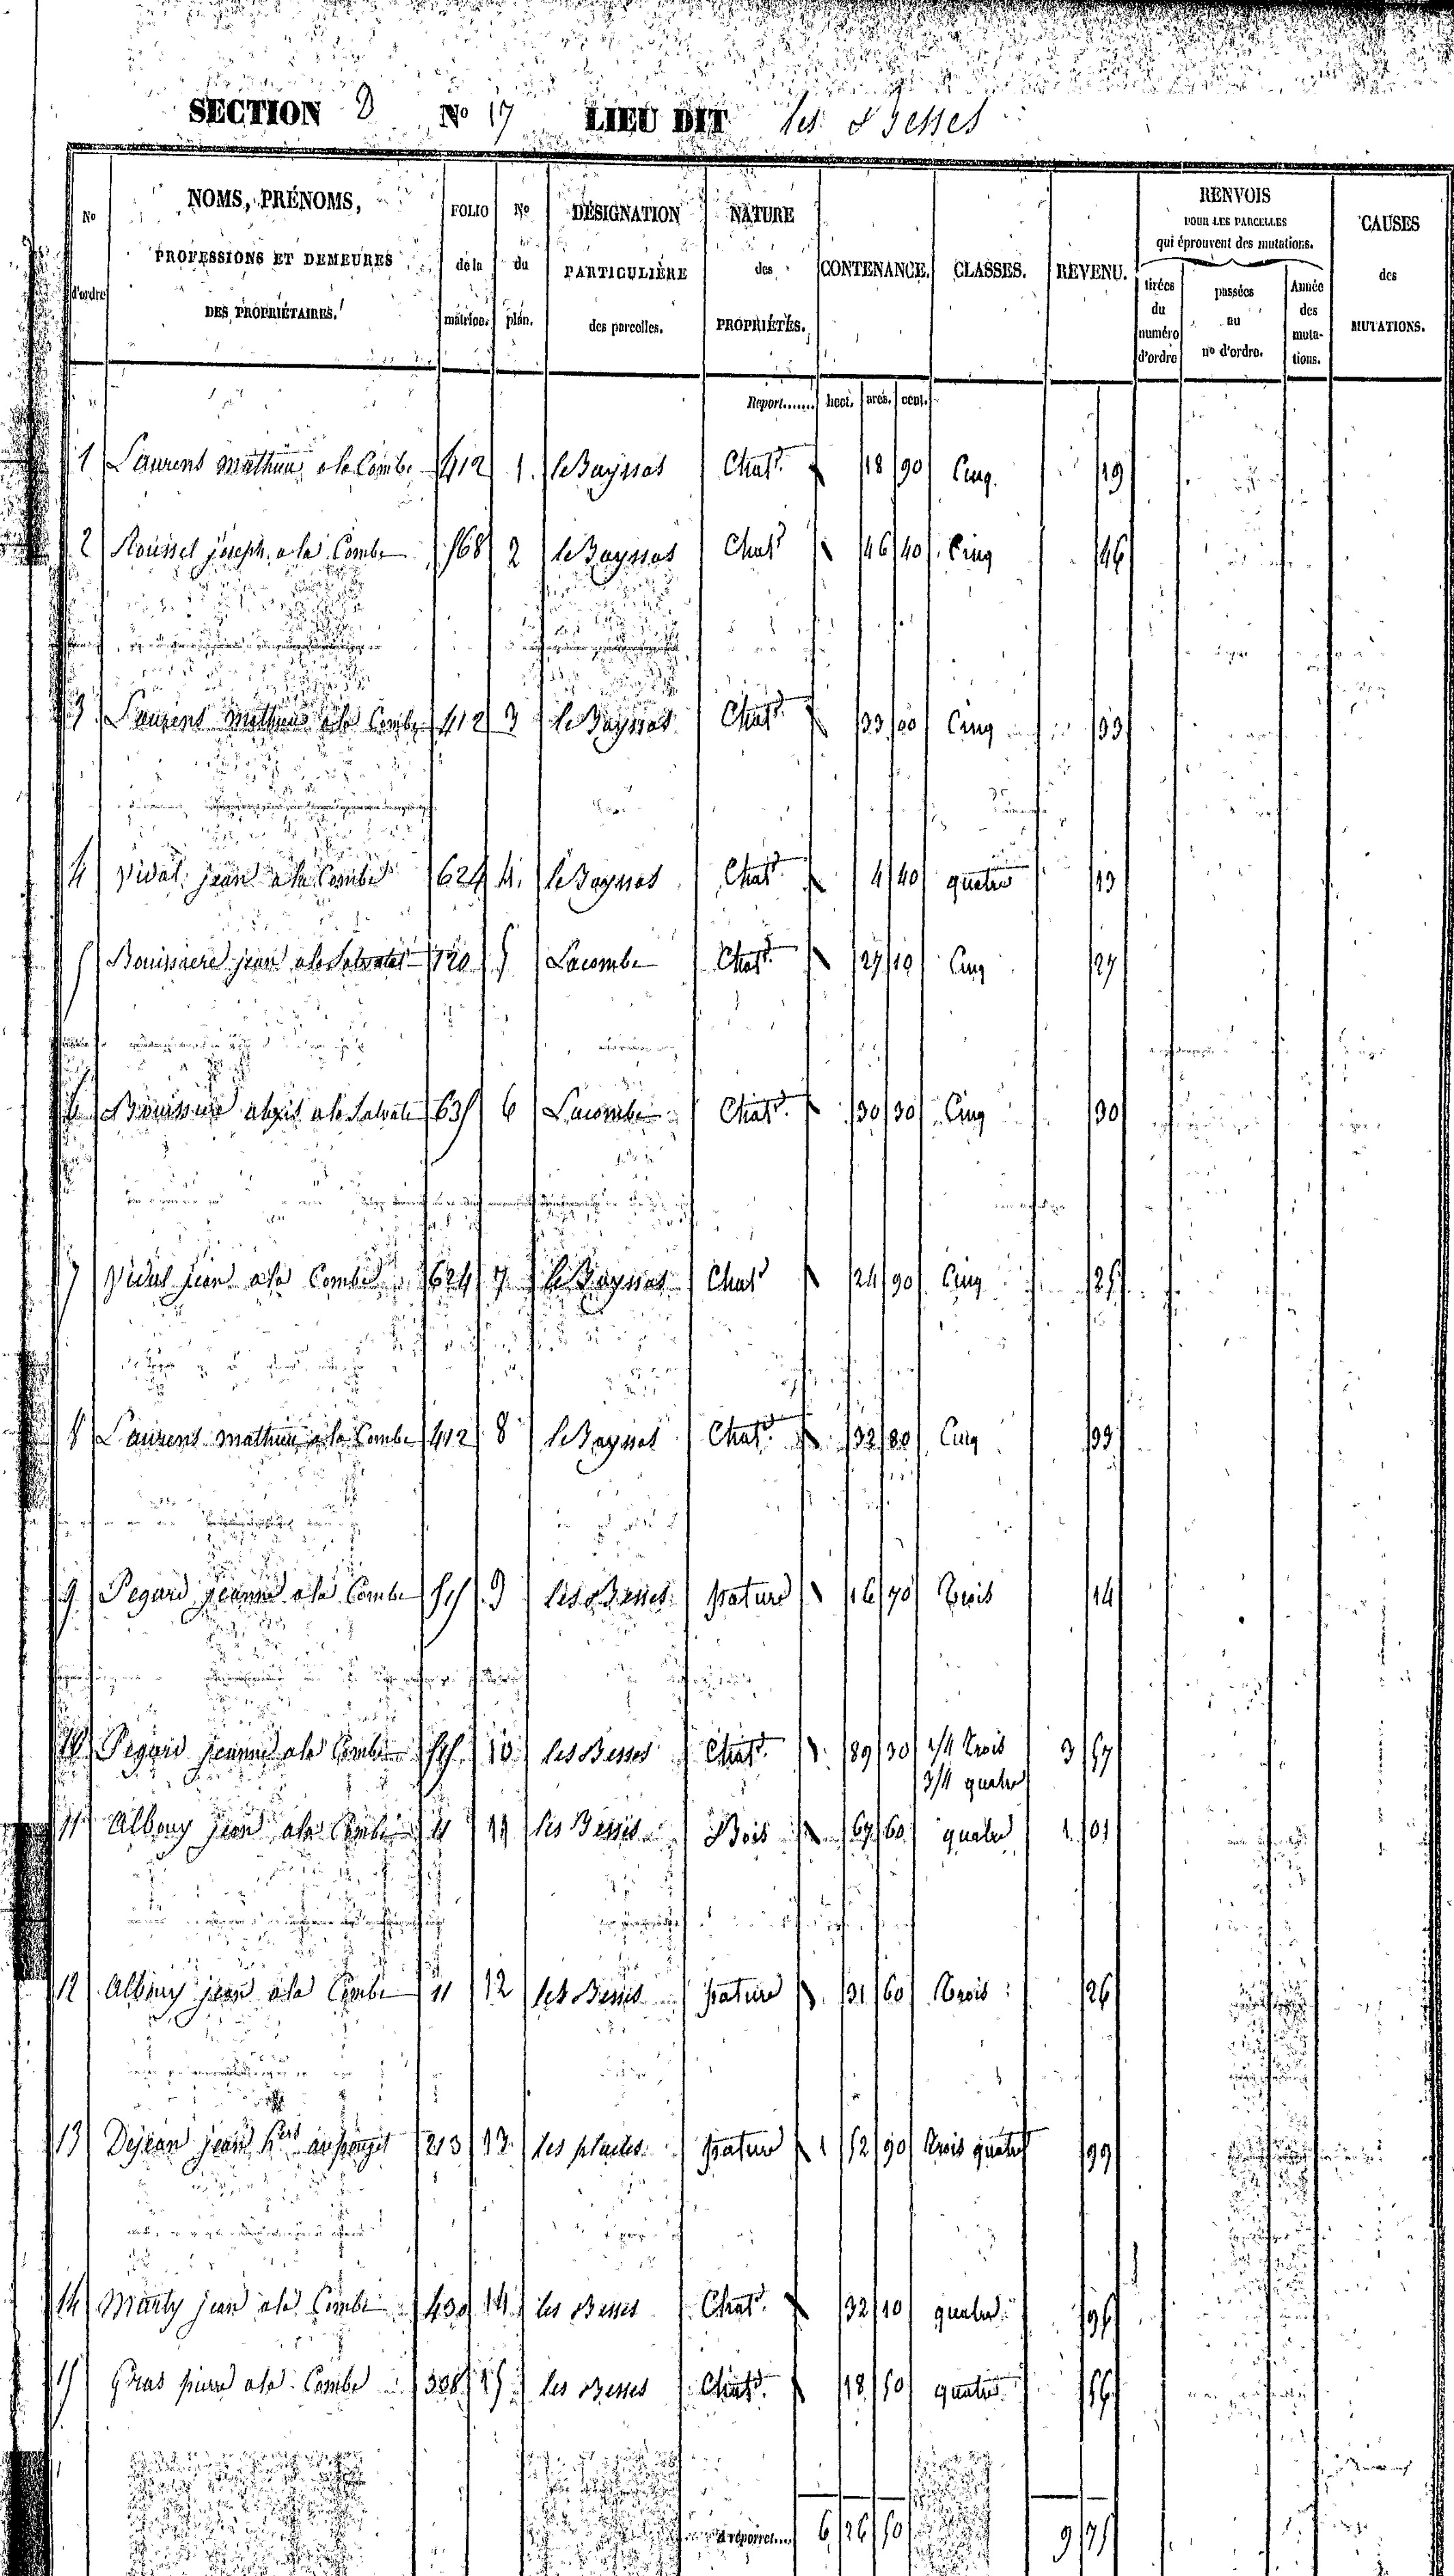 SECTION D No 17 LIEU DIT les Besses
No d'ordre | NOMS, PRÉNOMS, PROFESSIONS ET DEMEURES DES PROPRIÉTAIRES. | FOLIO de la matrice. | No du plan. | DÉSIGNATION PARTICULIÈRE des parcelles. | NATURE des PROPRIÉTÉS. | CONTENANCE. | CLASSES. | REVENU. | RENVOIS POUR LES PARCELLES qui éprouvent des mutations. | tirées du numéro d'ordre | passées au no d'ordre. | Année des mutations. | CAUSES des MUTATIONS.
Report....... hect. ares. cent.
1 Laurens mathieu a la Combe 412 1 le Bayssas Chat. 18 90 Cinq 19
2 Roussel joseph a la Combe 568 2 le Bayssas Chat. 46 40 Cinq 46
3 Laurens mathieu a la Combe 412 3 le Bayssas Chat. 33 00 Cinq 33
4 Vidal jean a la Combe 624 4 le Bayssas Chat. 4 40 quatre 13
5 Bouissiere jean a la Salvate 120 5 Lacombe Chat. 27 10 Cinq 27
6 Bouissiere alexis a la Salvate 635 6 Lacombe Chat. 30 30 Cinq 30
7 Vidal jean a la Combe 624 7 le Bayssas Chat. 24 90 Cinq 25
8 Laurens mathieu a la Combe 412 8 le Bayssas Chat. 32 80 Cinq 33
9 Pegard jeanne a la Combe 515 9 les Besses pature 16 70 Trois 14
10 Pegard jeanne a la Combe 515 10 les Besses Chat. 89 30 1/4 Trois 3 57
3/4 quatre
11 Albouy jean a la Combe 11 11 les Besses Bois 67 60 quatre 1 01
12 Albouy jean a la Combe 11 12 les Besses pature 31 60 Trois 26
13 Dejean jean hers au pouget 213 13 les plades pature 1 52 90 Trois quatre 99
14 Marty jean a la Combe 430 14 les Besses Chat. 32 10 quatre 96
15 Gras pierre a la Combe 338 15 les Besses Chat. 18 50 quatre 56
A reporter.... 6 26 50 9 75